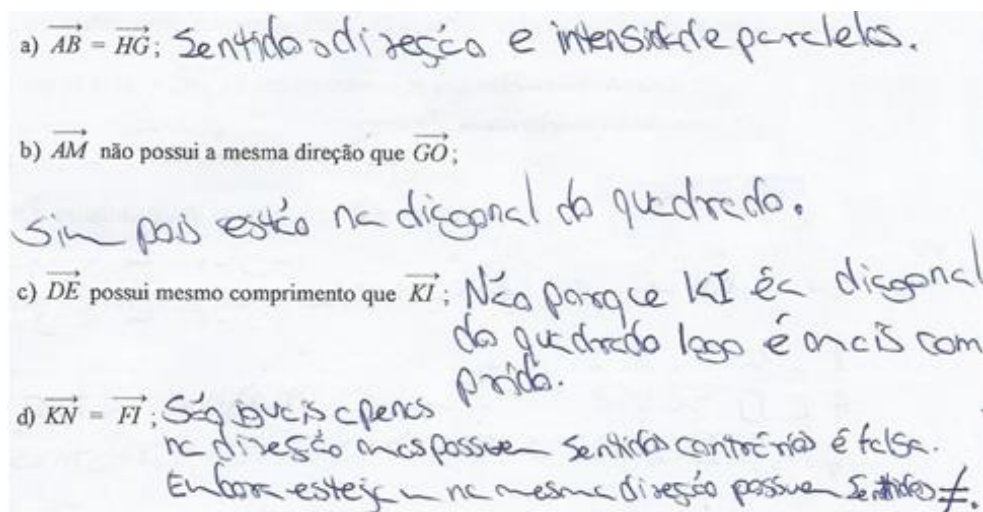 a) AB = HG; Sentido, direção e intensidade paralelos.
b) AM não possui a mesma direção que GO;
Sim pois estão na diagonal do quadrado.
c) DE possui mesmo comprimento que KI; Não porque KI é a diagonal
do quadrado logo é mais com
prido.
d) KN = FI; São iguais apenas
na direção mas possuem sentidos contrários é falsa.
Embora estejam na mesma direção possuem sentidos ≠.